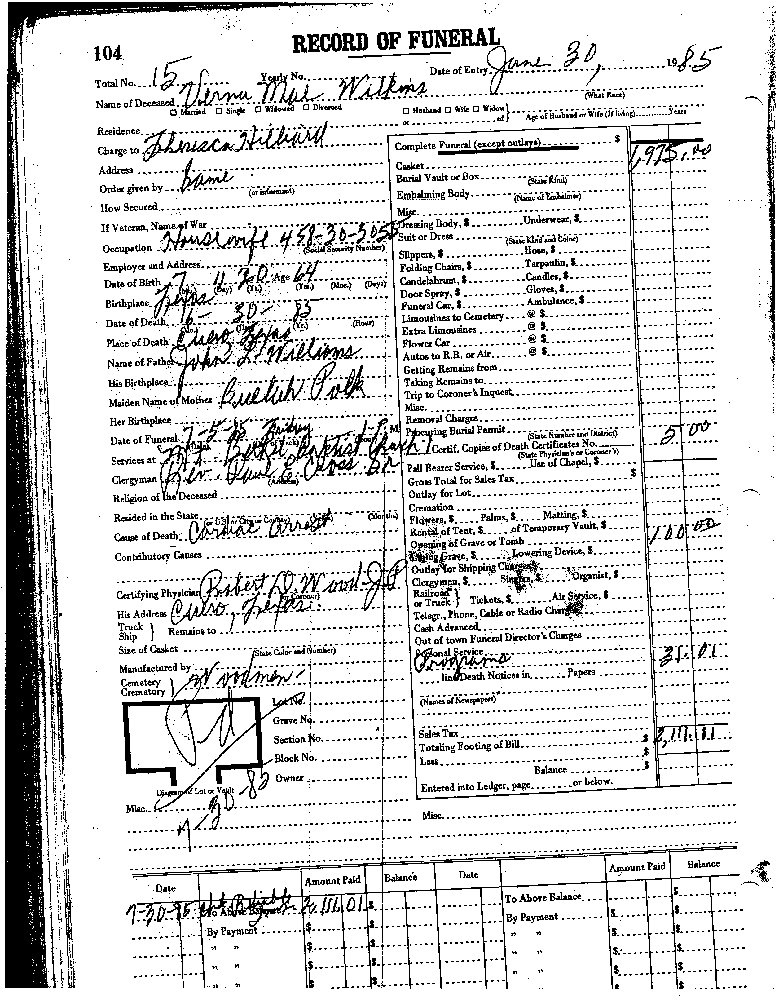 104
RECORD OF FUNERAL
Total No. 15 Yearly No. Date of Entry June 30, 1985
Name of Deceased Verna Mae Wilkins (What Race)
☐ Married ☐ Single ☐ Widowed ☐ Divorced ☐ Husband ☐ Wife ☐ Widow or of Age of Husband or Wife (If living) Years
Residence
Charge to Theresca Hilliard
Address
Order given by Same (or informant)
How Secured
If Veteran, Name of War
Occupation Housewife 458-30-5055 (Social Security Number)
Employer and Address
Date of Birth 7 4 20 Age 64
(Day) (Yr.) (Yrs.) (Mos.) (Days)
Birthplace Texas
Date of Death 6- 30- 85
Place of Death Cuero Texas (Hour)
Name of Father John L. Williams
His Birthplace
Maiden Name of Mother Polk
Her Birthplace
Date of Funeral 7-5-85 Friday
Services at Baptist Church
Clergyman Rev. Paul E. Cross Sr
Religion of the Deceased
Resided in the State (Months)
Cause of Death Cardiac Arrest
Contributory Causes
Certifying Physician Robert D. Wood J.P
His Address Cuero, Texas
Truck Ship } Remains to
Size of Casket (State Color and Number)
Manufactured by
Cemetery Crematory } Woodmen
Lot No.
Grave No.
Section No.
Block No.
Owner
Diagram of Lot or Vault
Pd
7-30 85
Misc.
Complete Funeral (except outlays) $ 1,975.00
Casket
Burial Vault or Box (State Kind)
Embalming Body (Name of Embalmer)
Misc.
Dressing Body, $ Underwear, $
Suit or Dress (State Kind and Color)
Slippers, $ Hose, $
Folding Chairs, $ Tarpaulin, $
Candelabrum, $ Candles, $
Door Spray, $ Gloves, $
Funeral Car, $ Ambulance, $
Limousines to Cemetery @ $
Extra Limousines @ $
Flower Car @ $
Autos to R.R. or Air @ $
Getting Remains from
Taking Remains to
Trip to Coroner's Inquest
Misc.
Removal Charges
Procuring Burial Permit (State Number and District)
1 Certif. Copies of Death Certificates No. 5 00
(State Physician's or Coroner's)
Pall Bearer Service, $ Use of Chapel, $
Gross Total for Sales Tax $
Outlay for Lot
Cremation
Flowers, $ Palms, $ Matting, $
Rental of Tent, $ of Temporary Vault, $
Opening of Grave or Tomb 100 00
Lining Grave, $ Lowering Device, $
Outlay for Shipping Charges
Clergymen, $ Singers, $ Organist, $
Railroad or Truck } Tickets, $ Air Service, $
Telegr., Phone, Cable or Radio Charges
Cash Advanced
Out of town Funeral Director's Charges
Personal Service
Programs 31.01
line Death Notices in Papers
(Names of Newspapers)
Sales Tax
Totaling Footing of Bill $ 2,111.01
Less $
Balance $
Entered into Ledger, page or below.
Misc.
Date Amount Paid Balance Date Amount Paid Balance
7-30-85 To Above Balance 2,111.01 $ To Above Balance $
By Payment $ $ By Payment $
" " $ $ " " $
" " $ $ " " $
" " $ $ " " $